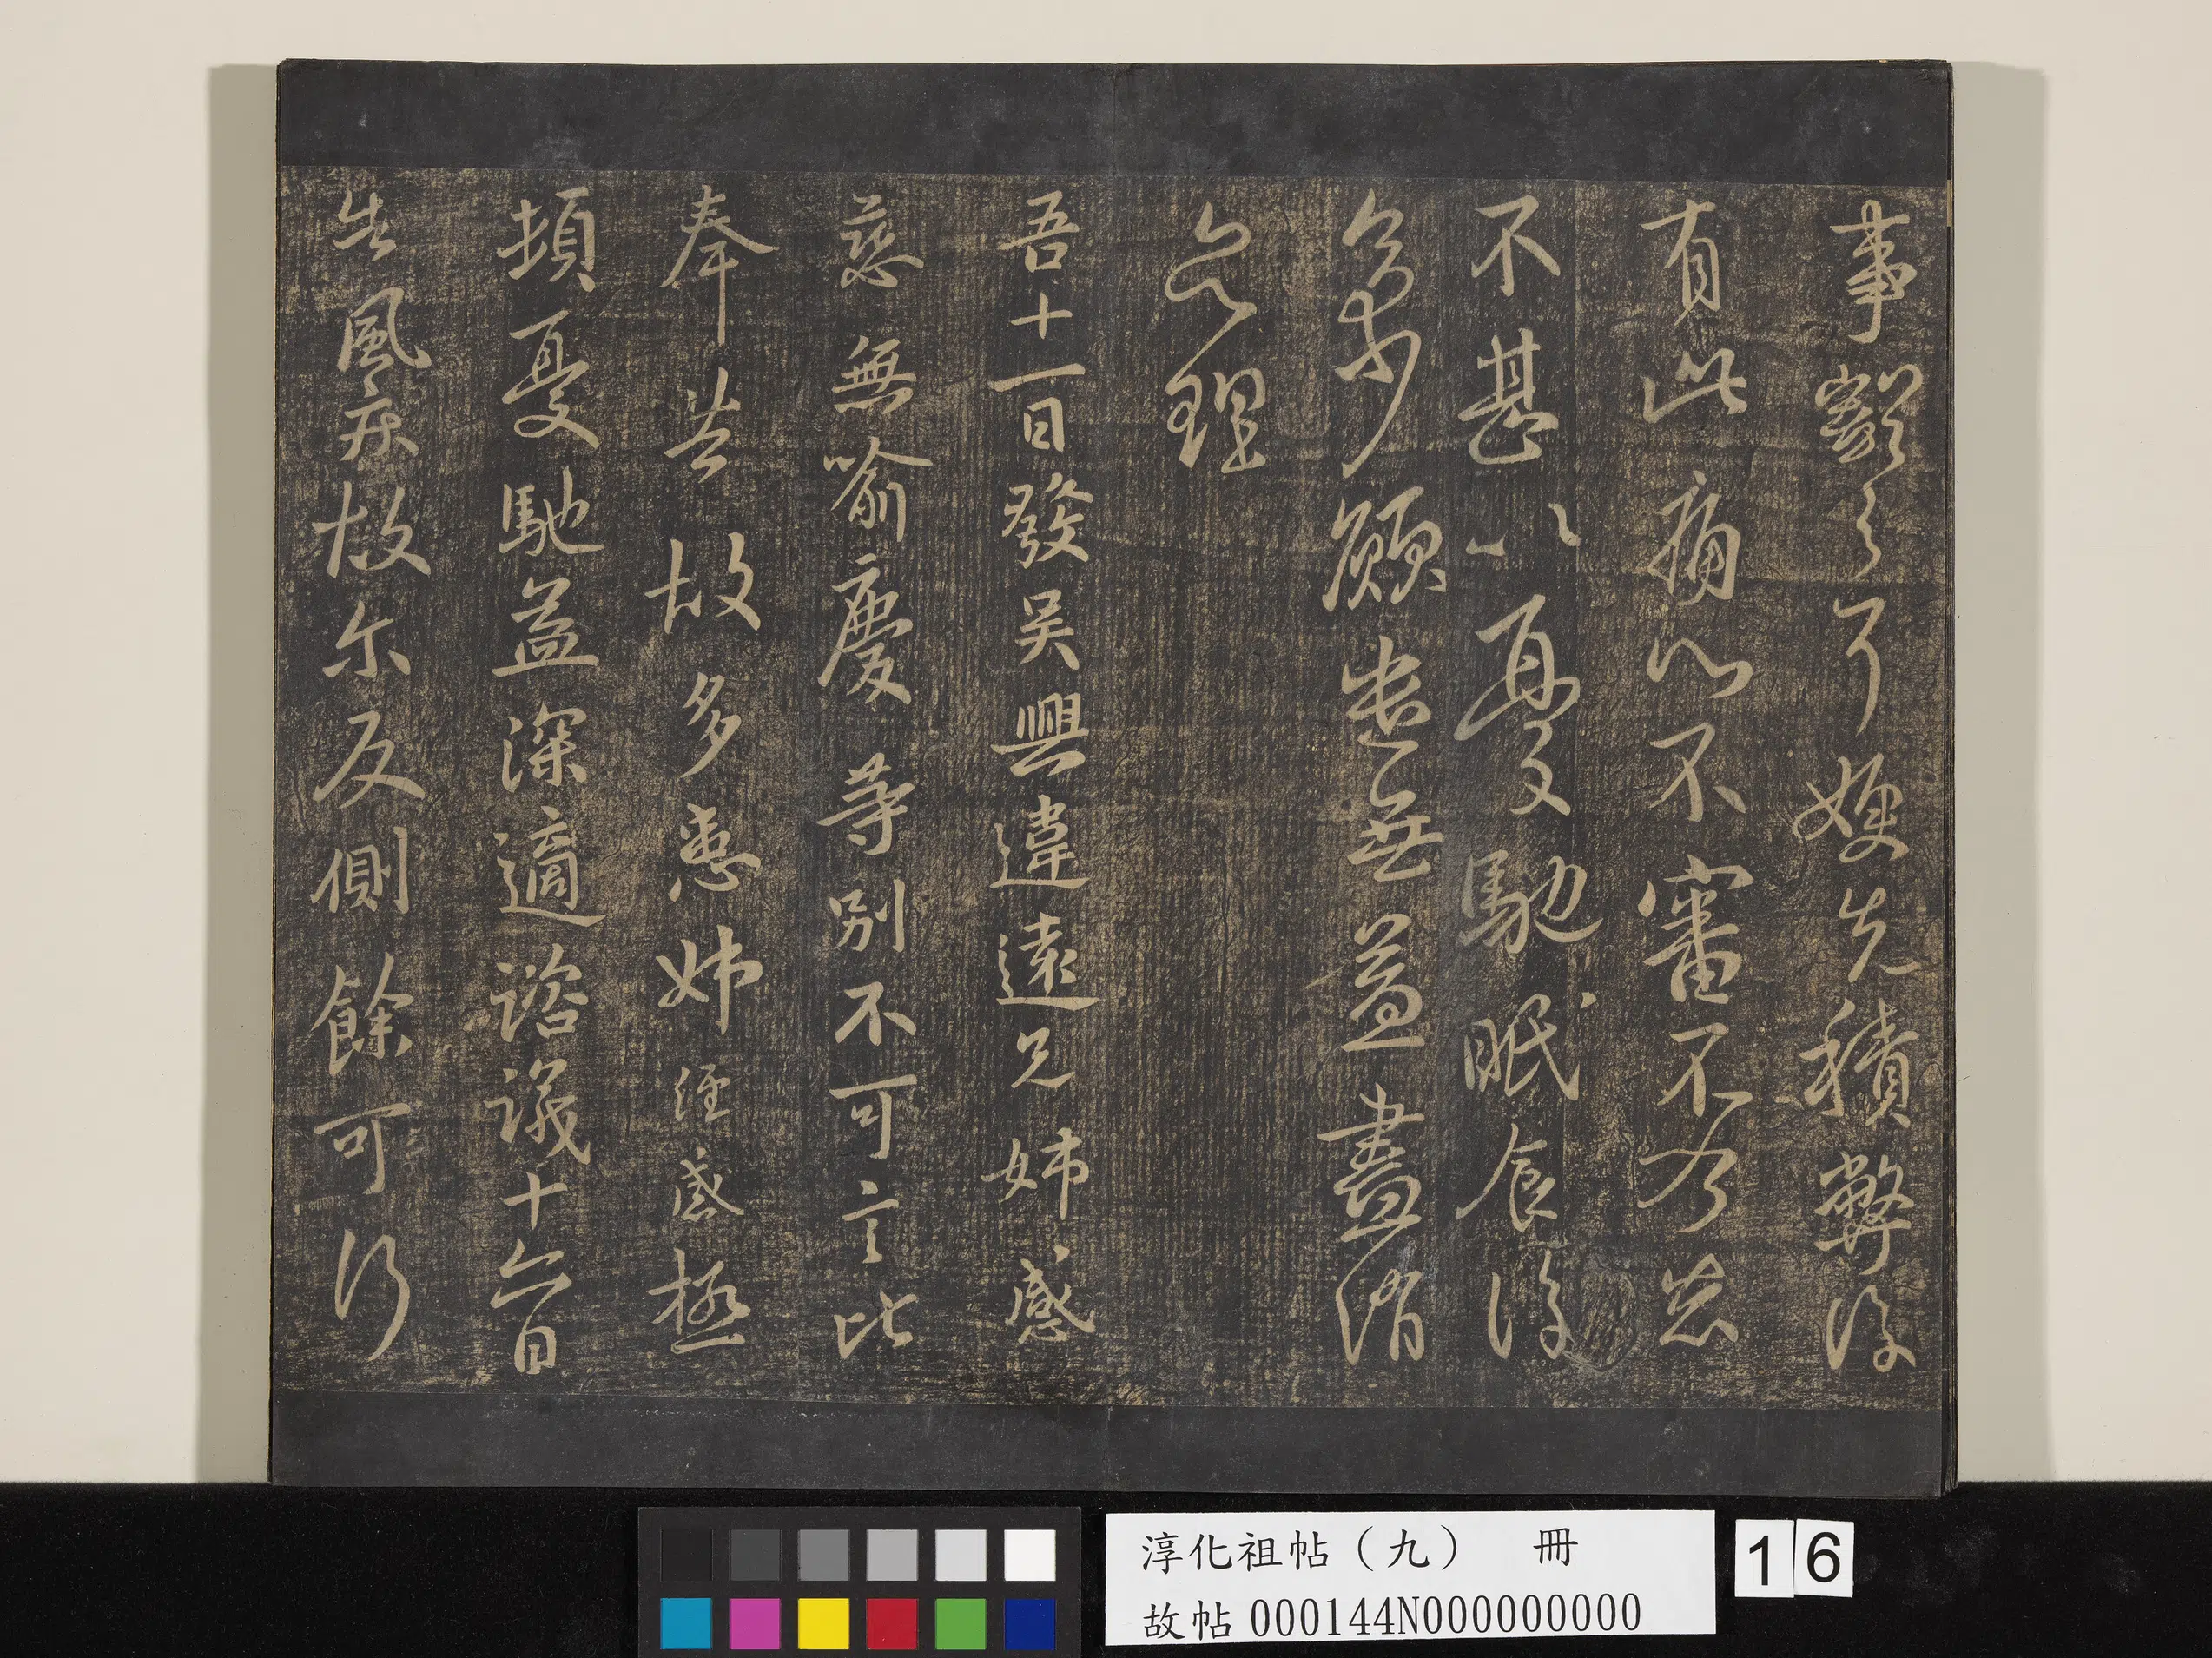 事豁々嫂先積弊復
有此痛心不審不乃惡
不甚以憂馳眠食復
多少願遣無益盡消
息理
吾十一日發吳興違遠兄姊感
慈無喻慶等別不可言比
奉告故多患姊經感極
頓憂馳益深適諮議十六日
告風疾故尔反側餘可行
淳化祖帖（九） 冊
故帖000144N000000000
16